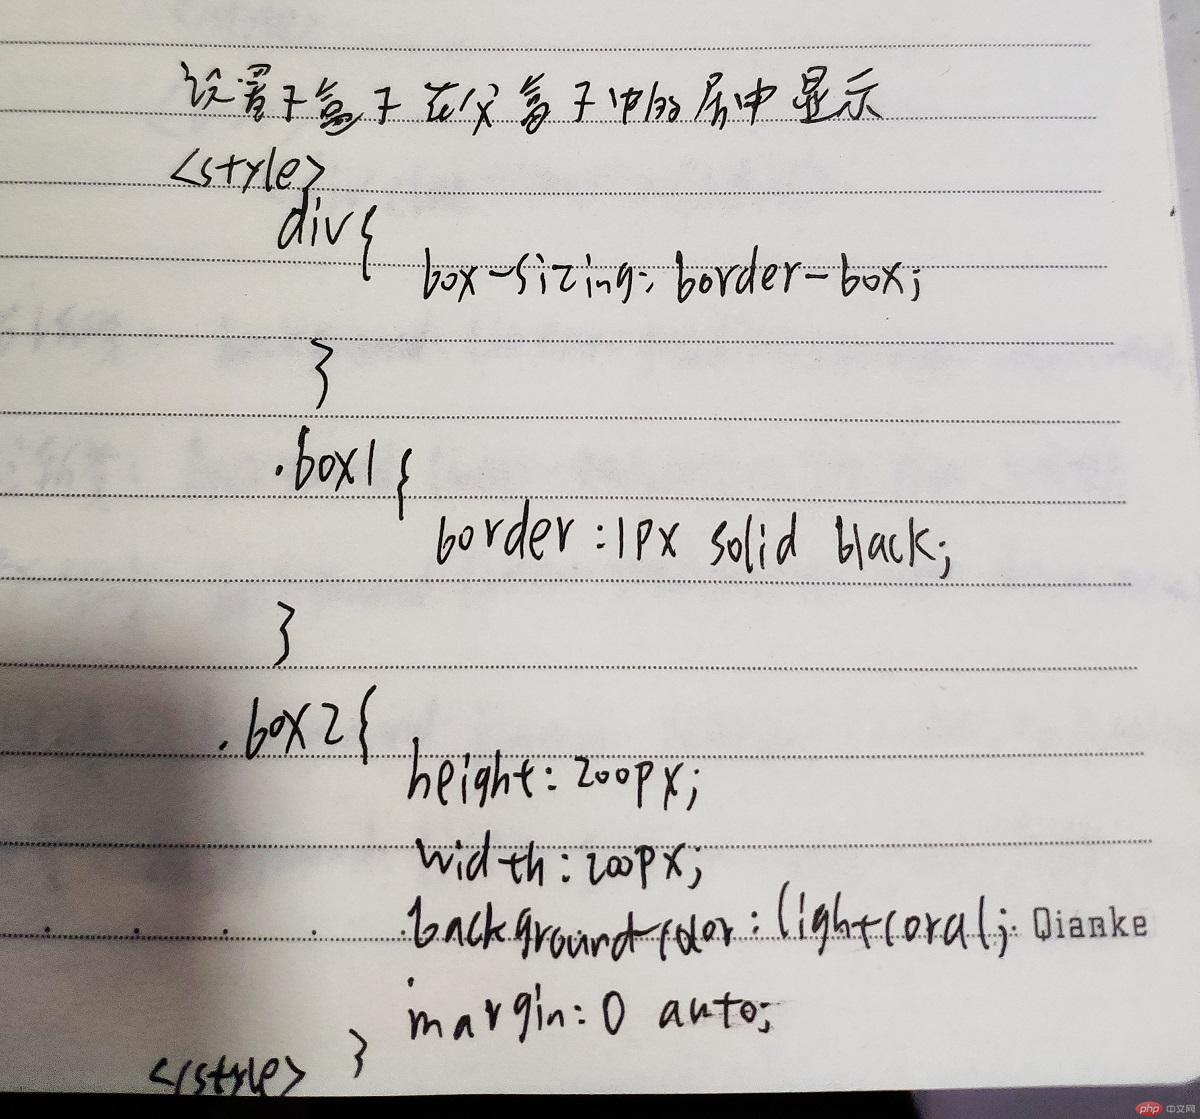 设置子盒子在父盒子中的居中显示
<style>
div{
box-sizing: border-box;
}
.box1{
border:1px solid black;
}
.box2{
height:200px;
width:200px;
background-color:lightcoral;
Qianke
margin:0 auto;
}
</style>
php 中文网